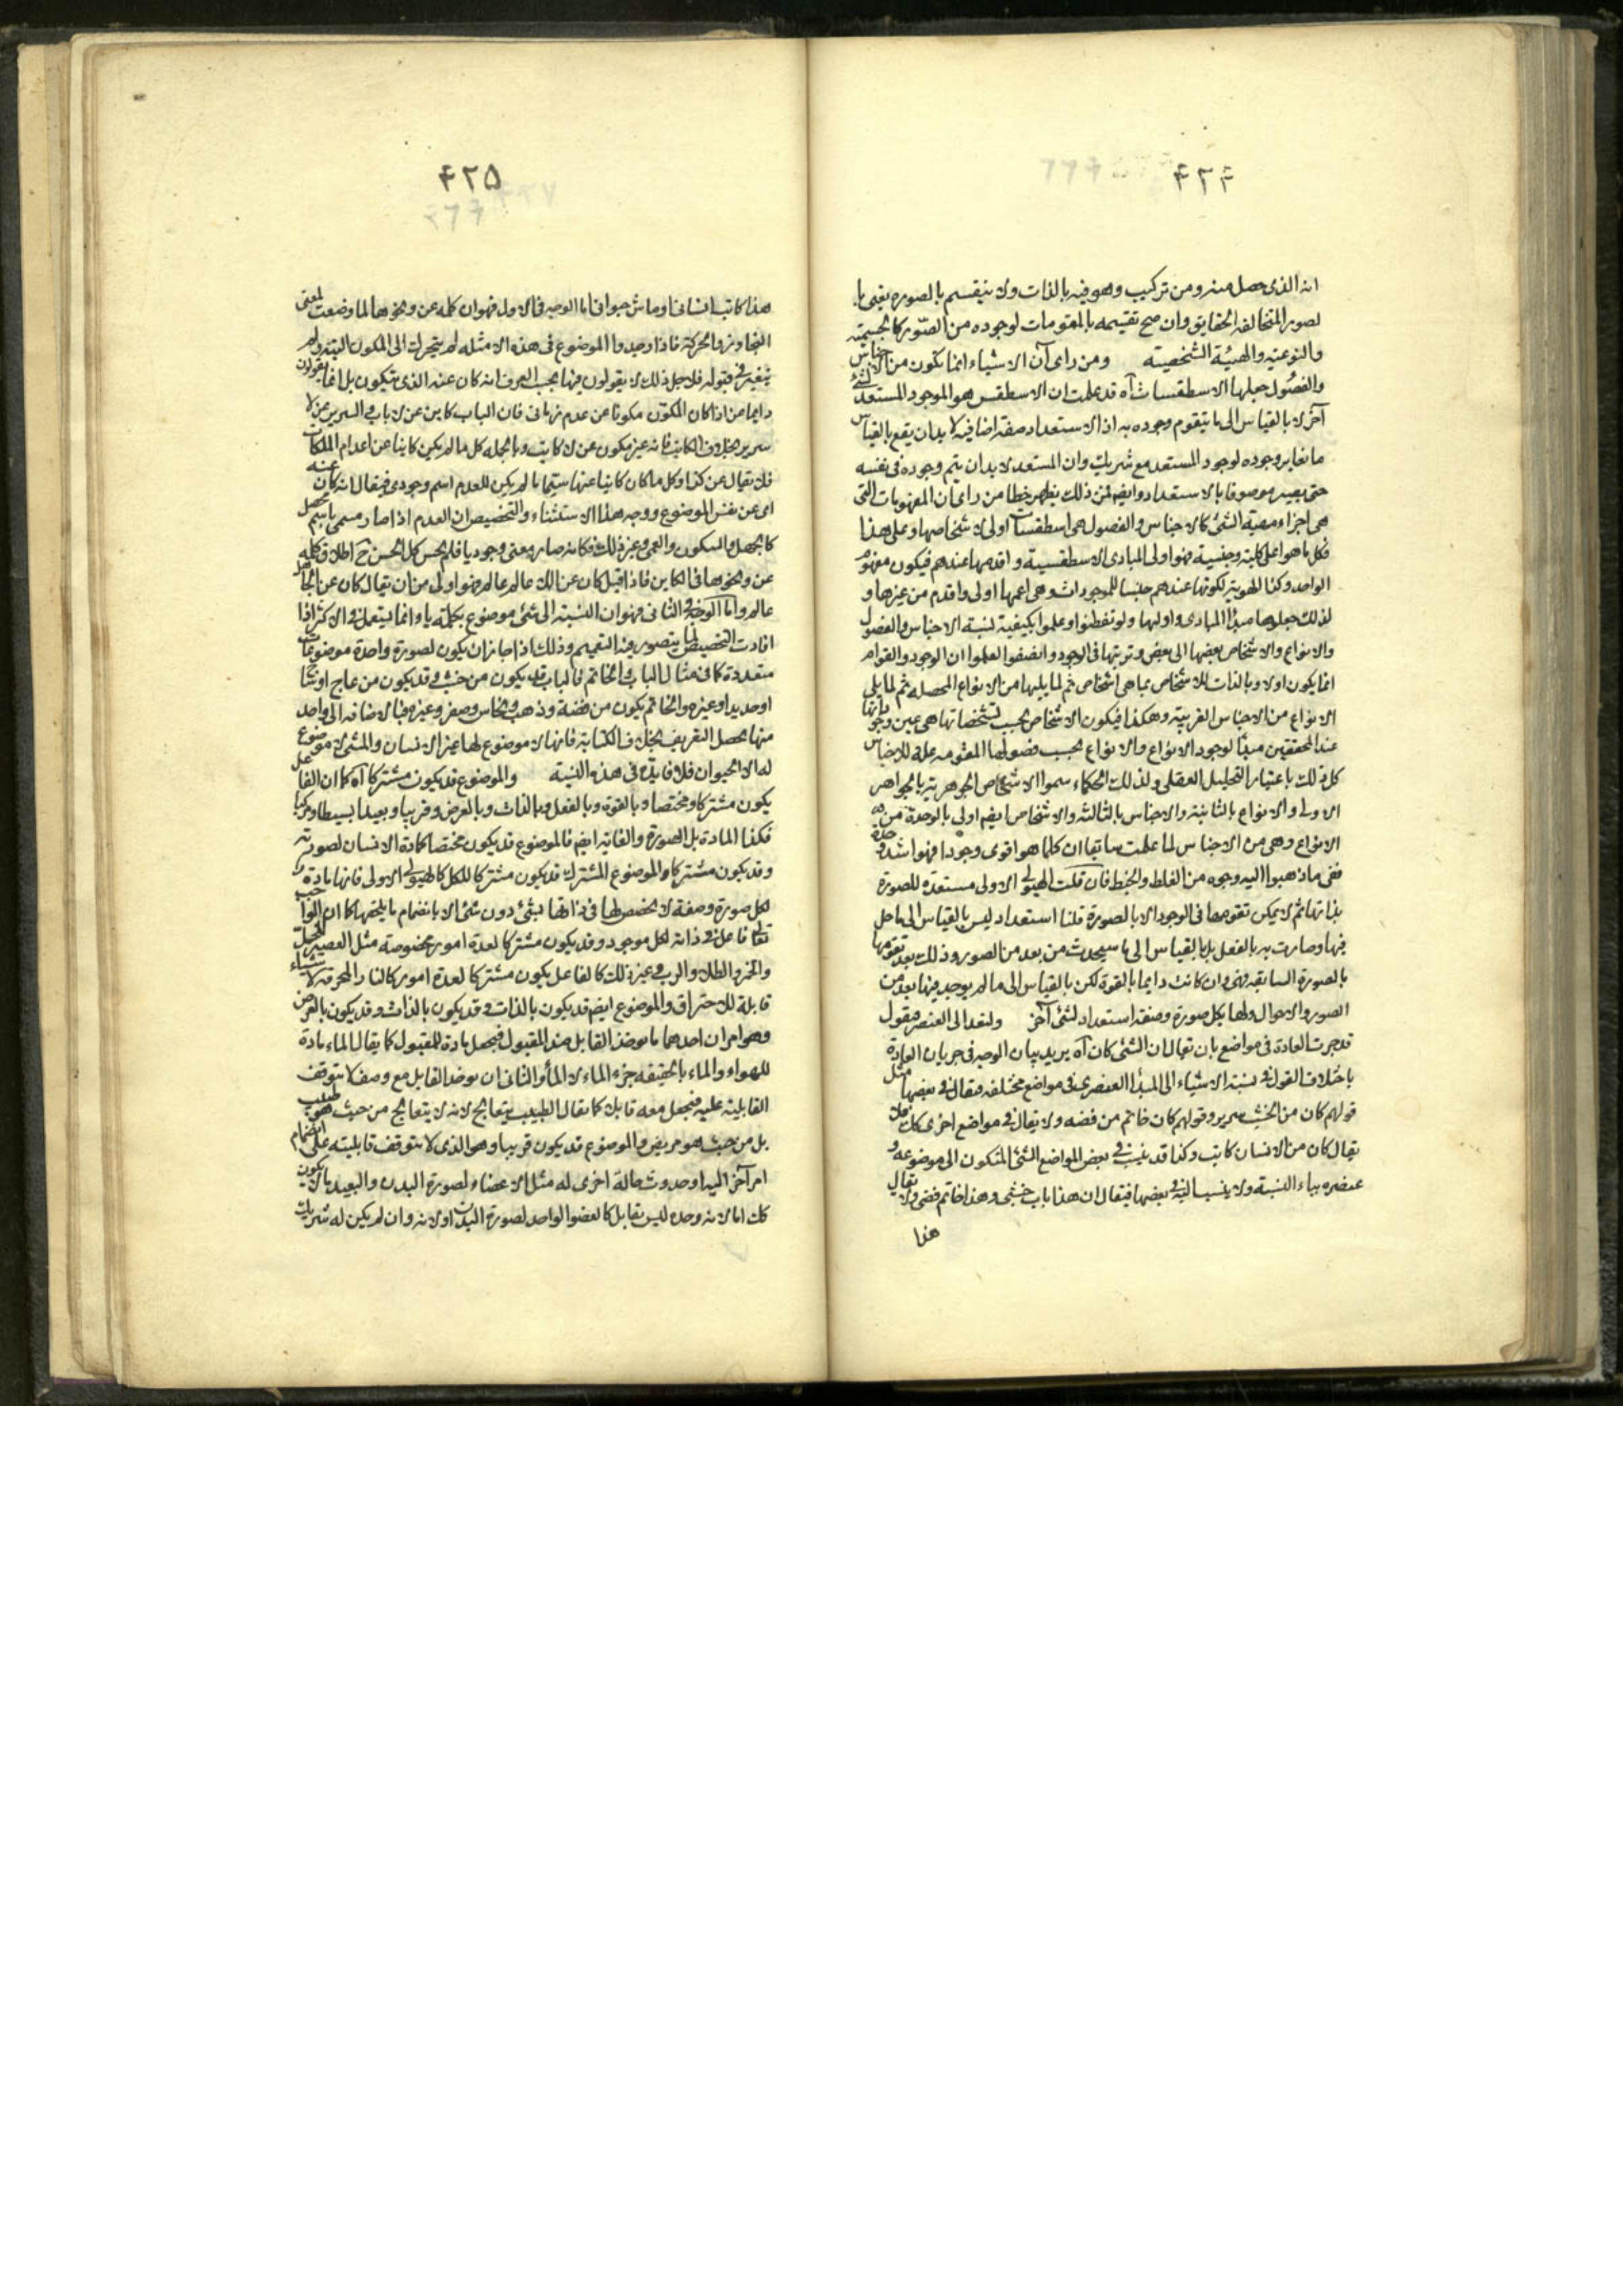 ۴۲۴
انه الذى حصل منه ومن تركيب وهو فيه بالذات ولا ينقسم بالصورة يعنى با
لصور المتخالفة الحقايق وان صح تقسيمه بالمقومات لوجوده من الصور كالجسمية
والنوعية والهيئة الشخصية ومن راى آن الاشياء انما تكون من الاجناس
والفصول جعلها الاسطقسات آه قد علمت ان الاسطقس هو الموجود المستعد لشئ
آخر لا بالقياس الى ما يتقوم وجوده به اذ الاستعداد صفة اضافية لا بد ان يقع بالقياس
ما يغاير وجوده لوجود المستعد مع شريك وان المستعد لا بد ان يتم وجوده فى نفسه
حتى يصير موصوفا بالاستعداد وايضا فمن ذلك يظهر خطا من راى ان المفهومات التى
هى اجزاء مهية الشئ كالاجناس والفصول هى اسطقسات اولى لاشخاصها وعلى هذا
فكل ما هو اعلى كلية وجنسية فهو اولى المبادى الاسطقسية واقدمها عندهم فيكون مفهوم
الواحد وكذا الهوية لكونها عندهم جنسا للموجودات وهى اعمها اولى واقدم من غيرها و
لذلك جعلوها مبدأ المبادى واولها ولو تفطنوا وعلموا بكيفية نسبة الاجناس والفصول
والانواع والاشخاص بعضها الى بعض وترتبها فى الوجود وانصفوا لعلموا ان الوجود والقوام
انما يكون اولا وبالذات للاشخاص بما هى اشخاص ثم لما يليها من الانواع المحصله ثم لما يلى
الانواع من الاجناس القريبة وهكذا فيكون الاشخاص بحسب تشخصاتها هى عين وجوداتها
عند المحققين مبدأ لوجود الانواع والانواع بحسب فصولها المقومه علة للاجناس
كل ذلك باعتبار التحليل العقلى ولذلك الحكماء سموا الاشخاص الجوهرية بالجواهر
الاولى والانواع بالثانية والاجناس بالثالثه والاشخاص ايضا اولى بالوحدة من
الانواع وهى من الاجناس لما علمت سابقا ان كلما هو اقوى وجودا فهو اشد وحدة
ففى ما ذهبوا اليه وجوه من الغلط والخبط فان قلت الهيولى الاولى مستعدة للصورة
بذاتها ثم لا يمكن تقومها فى الوجود الا بالصورة قلنا استعداد ليس بالقياس الى ما حل
فيها وصارت به بالفعل بل بالقياس الى ما سيحدث من بعد من الصور وذلك بعد تقومها
بالصورة السابقه فهى وان كانت دايما بالقوة لكن بالقياس الى ما لم يوجد فيها بعد من
الصور والاحوال ولها بكل صورة وصفة استعداد لشئ آخر ولنعد الى العنصر فيقول
قد جرت العادة فى مواضع بان يقال ان الشئ كان آه يريد بيان الوجه فى جريان العادة
باختلاف القول فى نسبة الاشياء الى المبدأ العنصرى فى مواضع مختلفه فيقال فى بعضها مثل
قولهم كان من الخشب سرير وقولهم كان خاتم من فضه ولا يقال فى مواضع اخرى كك فلا
يقال كان من الانسان كاتب وكذا قد ينسب فى بعض المواضع الشئ المتكون الى موضوعه و
عنصره بياء النسبة ولا ينسب اليه فى بعضها فيقال ان هذا باب خشبى وهذا خاتم فضى ولا يقال
هذا
۴۲۵
هذا كاتب انسانى او ماش حيوانى اما الوجه فى الاول فهو ان كلمه عن ونحوها لما وضعت لمعنى
التجاوز والحركة فاذا وجدوا الموضوع فى هذه الامثله لم يتحرك الى المكون البتة ولم
يتغير فى قبوله فلاجل ذلك لا يقولون فيها بحسب العرف انه كان عنه الذى يتكون بل انما يقولون
دايما من اذا كان المكون مكونا عن عدم زمانى فان الباب كاين عن لا باب والسرير عن لا
سرير بخلاف الكاتب فانه غير مكون عن لا كاتب وبالجمله كل ما لم يكن كاينا عن اعدام الملكات
فلا يقال عن كذا وكل ما كان كاينا عنها سيما ما لم يكن للعدم اسم وجودى فيقال انه كان عنه
اى عن نفس الموضوع ووجه هذا الاستثناء والتخصيص ان العدم اذا صار مسمى باسم محصل
كالجهل والسكون والعمى وغير ذلك فكانه صار معنى وجوديا فلم يحسن كل الحسن ح اطلاق كلمه
عن ونحوها فى الكاين فاذا قيل كان عن اللا عالم عالم فهو اولى من ان يقال كان عن الجاهل
عالم واما الوجه فى الثانى فهو ان النسبة الى شئ موضوع بكلمة يا وانما يستعمل فى الاكثر اذا
افادت التخصيص لما يتصور فيه التعميم وذلك اذا جاز ان يكون لصورة واحدة موضوعات
متعددة كما فى مثال الباب والخاتم فالباب قد يكون من خشب وقد يكون من عاج او ساج
او حديد او غيره والخاتم يكون من فضة وذهب ونحاس وصفر وغيره فبالاضافه الى واحد
منها يحصل التعريف بخلاف الكتابة فانها لا موضوع لها غير الانسان والمشى لا موضوع
له الا الحيوان فلا فايدة فى هذه النسبة والموضوع قد يكون مشتركا آه كما ان الفاعل
يكون مشتركا ومختصا وبالقوة وبالفعل وبالذات وبالعرض وقريبا وبعيدا بسيطا ومركبا
فكذا المادة بل الصورة والغاية ايضا فالموضوع قد يكون مختصا كمادة الانسان لصورته
وقد يكون مشتركا والموضوع المشترك قد يكون مشتركا للكل كالهيولى الاولى فانها مادة
لكل صورة وصفة لا تخصص لها فى ذاتها بشئ دون شئ الا بانضمام ما يلحقها كما ان الواجب
تعالى فاعل فى ذاته لكل موجود وقد يكون مشتركا لعدة امور مخصوصة مثل العصير للخل
والخمر والطلاء والرب وغير ذلك كالفاعل يكون مشتركا لعدة امور كالنار المحرقه لاشياء
قابلة للاحتراق والموضوع ايضا قد يكون بالذات وقد يكون بالذات وقد يكون بالعرض
وهو امران احدهما ما يوخذ القابل ضد المقبول فيجعل مادة للمقبول كما يقال الماء مادة
للهواء والماء بالحقيقه جزء الماء لا الماء والثانى ان يوخذ القابل مع وصف لا يتوقف
القابلية عليه فيجعل معه قابلا كما يقال الطبيب يتعالج لانه لا يتعالج من حيث هو طبيب
بل من حيث هو مريض والموضوع قد يكون قريبا وهو الذى لا يتوقف قابليته على انضمام
امر آخر اليه او حدوث حالة اخرى له مثل الاعضاء لصورة البدن والبعيد ما لا يكون
كك اما لانه وحده ليس بقابل كالعضو الواحد لصورة البدن او لانه وان لم يكن له شريك